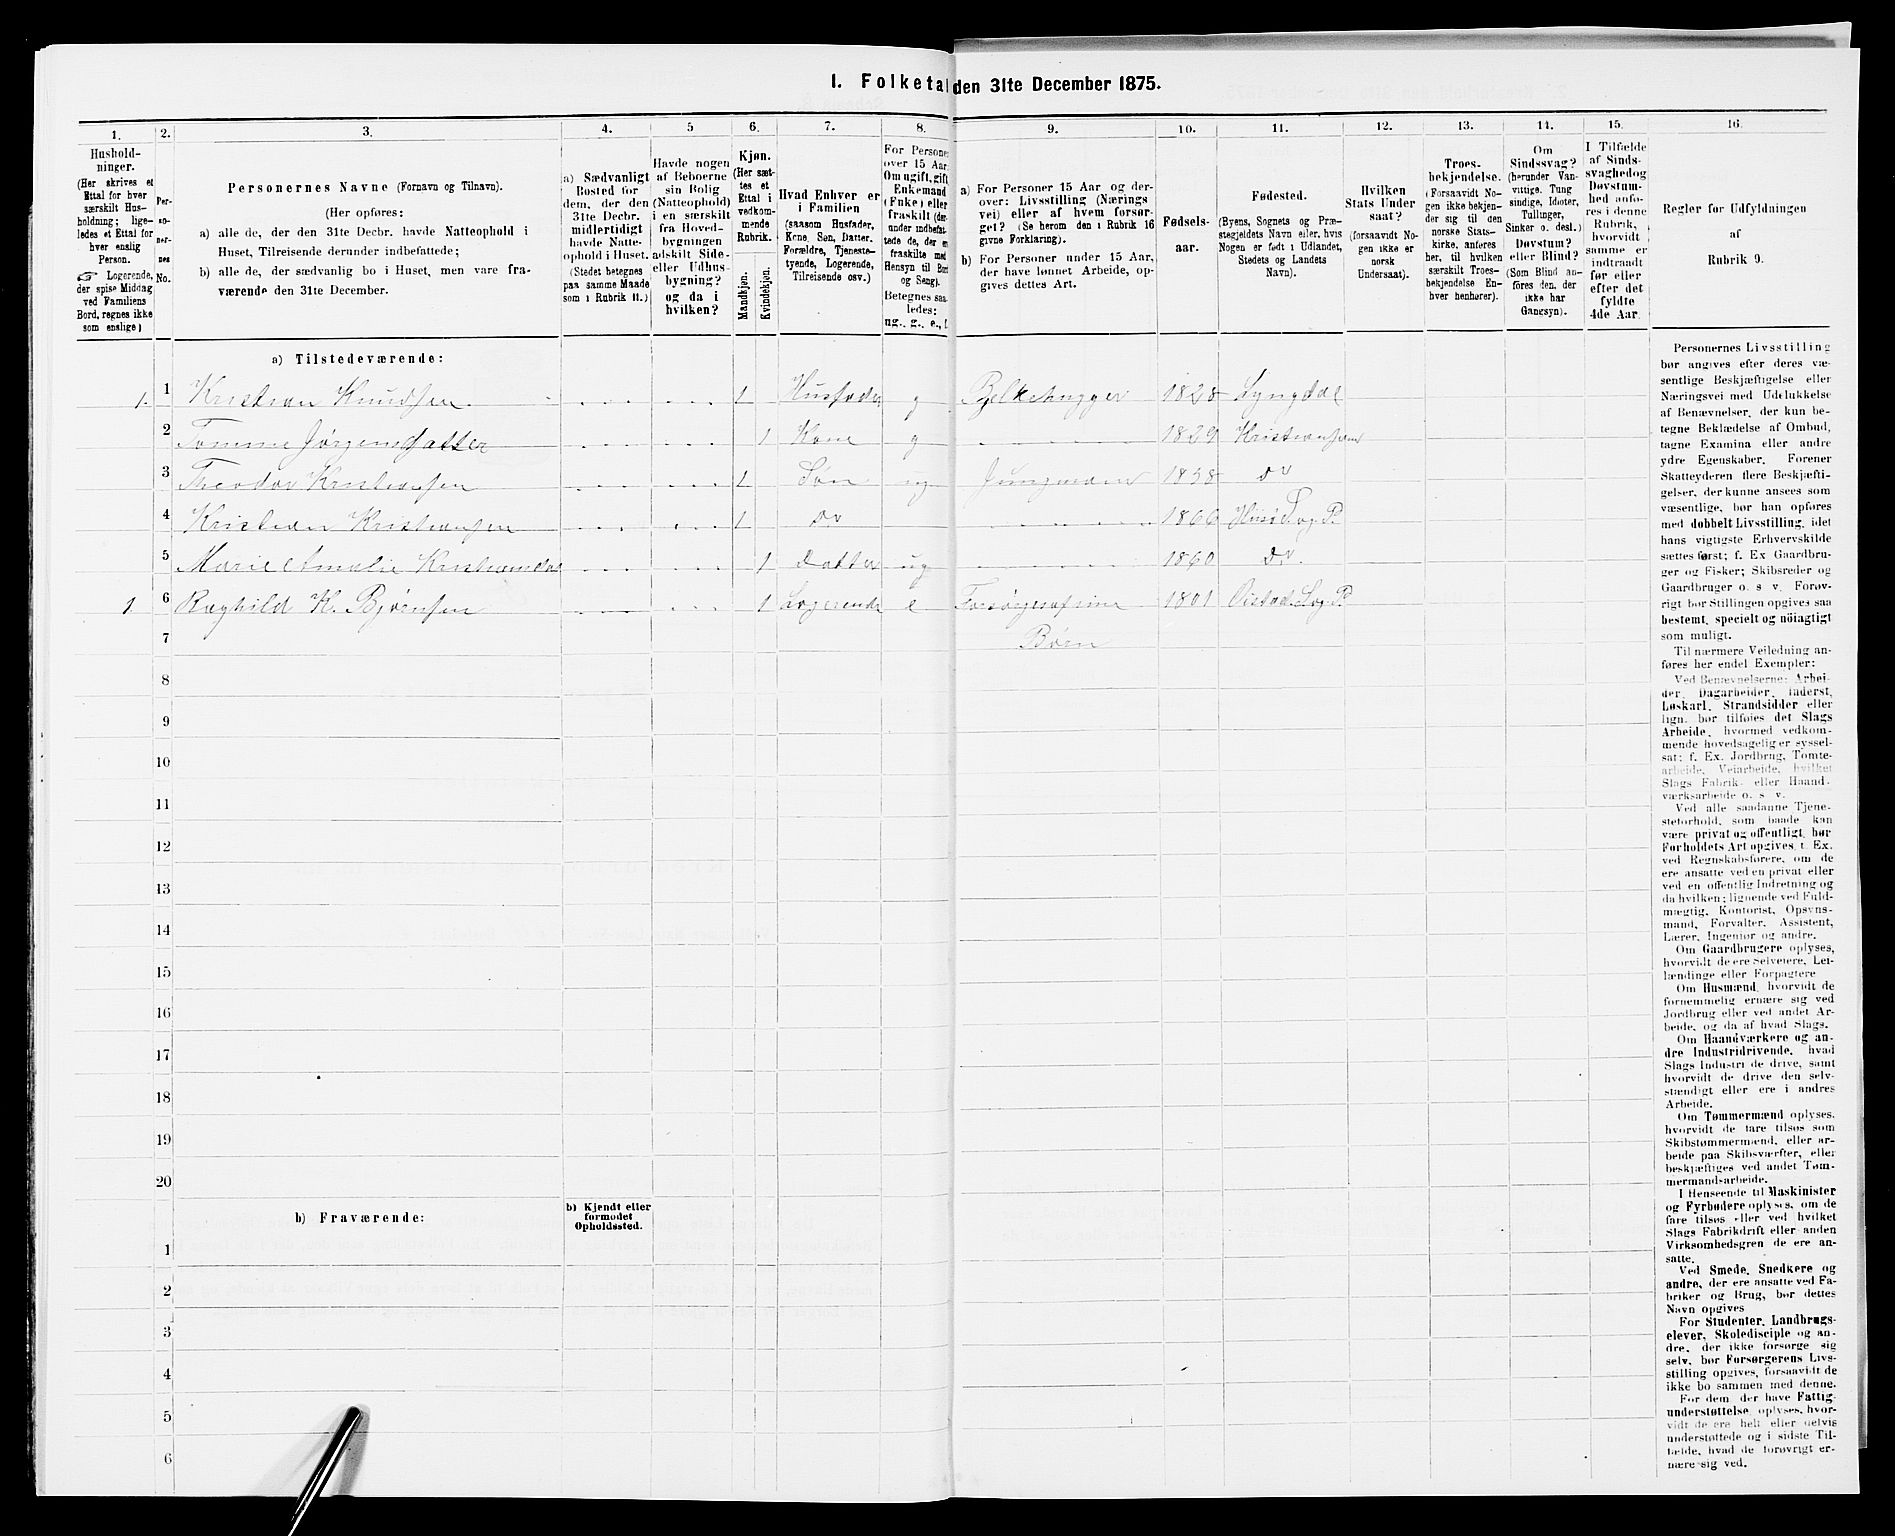 I. Folketal den 31te December 1875.
1.
2.
3.
4.
5
6.
7.
8.
9.
10.
11.
12.
13.
14.
15.
16.
Hushold-
ninger.
(Her skrives et
Ettal for hver
særskilt Hus-
holdning; lige-
ledes et Ettal for
hver enslig
Person.
☞ Logerende,
der spise Middag
ved Familiens
Bord, regnes ikke
som enslige)
Per-
so-
ner-
nes
No.
Personernes Navne (Fornavn og Tilnavn).
(Her opføres:
a) alle de, der den 31te Decbr. havde Natteophold i
Huset, Tilreisende derunder indbefattede;
b) alle de, der sædvanlig bo i Huset, men vare fra-
værende den 31te December.
a) Sædvanligt
Bosted for
dem, der den
31te Decbr.
midlertidigt
havde Natte-
ophold i Huset.
(Stedet betegnes
paa samme Maade
som i Rubrik 11.)
Havde nogen
af Beboerne
sin Bolig
(Natteophold)
i en særskilt
fra Hoved-
bygningen
adskilt Side-
eller Udhus-
bygning?
og da i
hvilken?
Kjøn.
(Her sæt-
tes et
Ettal i
vedkom-
mende
Rubrik.
Mandkjøn.
Kvindekjøn.
Hvad Enhver er
i Familien
(saasom Husfader,
Kone, Søn, Datter,
Forældre, Tjeneste-
tyende, Logerende,
Tilreisende osv.)
For Persone
over 15 Aar
Om ugift, gift
Enkemand
(Enke) eller
fraskilt (der-
under indbefat-
tede de, der e
fraskilte med
Hensyn til Bo
og Seng).
Betegnes saa
ledes:
ug., g., e., f.
a) For Personer 15 Aar og der-
over: Livsstilling (Nærings
vei) eller af hvem forsør-
get? (Se herom den i Rubrik 16
givne Forklaring).
b) For Personer under 15 Aar,
der have lønnet Arbeide, op-
gives dettes Art.
Fødsels-
aar.
Fødested.
(Byens, Sognets og Præ-
stegjeldets Navn eller, hvis
Nogen er født i Udlandet,
Stedets og Landets
Navn).
Hvilken
Stats Under
saat?
(forsaavidt No-
gen ikke er
norsk
Undersaat).
Troes-
bekjendelse.
(Forsaavidt No-
gen ikke bekjen-
der sig til den
norske Stats-
kirke, anføres
her, til hvilken
særskilt Troes-
bekjendelse En-
hver henhører).
Om
Sindssvag?
(herunder Van-
vittige, Tung
sindige, Idioter,
Tullinger,
Sinker o. desl.)
Døvstum?
eller Blind?
(Som Blind an-
føres den, der
ikke har
Gangsyn).
I Tilfælde
af Sinds-
svaghed og
Døvstum-
hed anfø-
res i denne
Rubrik,
hvorvidt
samme er
indtraadt
før eller
efter det
fyldte
4de Aar.
Regler for Udfyldningen
af
Rubrik 9.
a) Tilstedeværende:
1. 1 Kristian Knudsen 1 Husfader g Bjelkehugger 1828 Lyngdal
2 Tomine Jørgensdatter 1 Kone g 1829 Kristiansand
3 Theodor Kristiansen 1 Søn ug Jungmand 1858 do
4 Kristian Kristiansen 1 do 1866 S. og P.
5 Marie Amalie Kristiansdat 1 Datter ug 1860 do
1 6 Raghild K. Bjørnsen 1 Logerende e Forsørges af sine 1801 Øistad S. og P.
7 Børn
8
9
10
11
12
13
14
15
16
17
18
19
20
b) Fraværende:
b) Kjendt eller
formodet
Opholdssted.
1
2
3
4
5
6
Personernes Livsstilling
bør angives efter deres væ-
sentlige Beskjæftigelse eller
Næringsvei med Udelukkelse
af Benævnelser, der kun be-
tegne Beklædelse af Ombud,
tagne Examina eller andre
ydre Egenskaber. Forener
Skatteyderen flere Beskjæfti-
gelser, der kunne ansees som
væsentlige, bør han opføres
med dobbelt Livsstilling, idet
hans vigtigste Erhvervskilde
sættes først; f. Ex Gaardbru-
ger og Fisker; Skibsreder og
Gaardbruger o. s v. Forøv-
rigt bør Stillingen opgives saa
bestemt, specielt og nöiagtigt
som muligt.
Til nærmere Veiledning an-
føres her endel Exempler:
Ved Benævnelserne: Arbei-
der, Dagarbeider, Inderst,
Løskarl, Strandsidder eller
lign. bør tilføies det Slags
Arbeide, hvormed vedkom-
mende hovedsagelig er syssel-
sat; f. Ex. Jordbrug, Tomte-
arbeide, Veiarbeide, hvilket
Slags Fabrik- eller Haand-
værksarbeide o. s v.
Ved alle saadanne Tjene-
steforhold, som baade kan
være privat og offentligt, bør
Forholdets Art opgives, t. Ex.
ved Regnskabsførere, om de
ere ansatte ved en privat eller
ved en offentlig Indretning og
da hvilken; lignende ved Fuld-
mægtig, Kontorist, Opsyns-
mand, Forvalter, Assistent,
Lærer, Ingeniør og andre.
Om Gaardbrugere oplyses,
hvorvidt de ere Selveiere, Lei-
lændinge eller Forpagtere
Om Husmænd, hvorvidt de
fornemmelig ernære sig ved
Jordbrug eller ved andet Ar-
beide, og da af hvad Slags.
Om Haandværkere og an-
dre Industridrivende, hvad
Slags Industri de drive, samt
hvorvidt de drive den selv-
stændigt eller ere i andres
Arbeide.
Om Tømmermænd oplyses,
hvorvidt de fare tilsøs som
Skibstømmermænd, eller ar-
beide paa Skibsværfter, eller
beskjæftiges ved andet Tøm-
mermandsarbeide.
I Henseende til Maskinister
og Fyrbødere oplyses, om de
fare tilsøs eller ved hvilket
Slags Fabrikdrift eller anden
Virksomhedsgren de ere an-
satte.
Ved Smede, Snedkere og
andre, der ere ansatte ved Fa-
briker og Brug, bør dettes
Navn opgives
For Studenter, Landbrugs-
elever, Skoledisciple og an-
dre, der ikke forsørge sig
selv, bør Forsørgerens Livs-
stilling opgives, forsaavidt de
ikke bo sammen med denne.
For dem, der have Fattig-
understøttelse, oplyses, hvor-
vidt de ere helt eller delvis
understøttede og i sidste Til-
fælde, hvad de forøvrigt er-
nære sig ved.